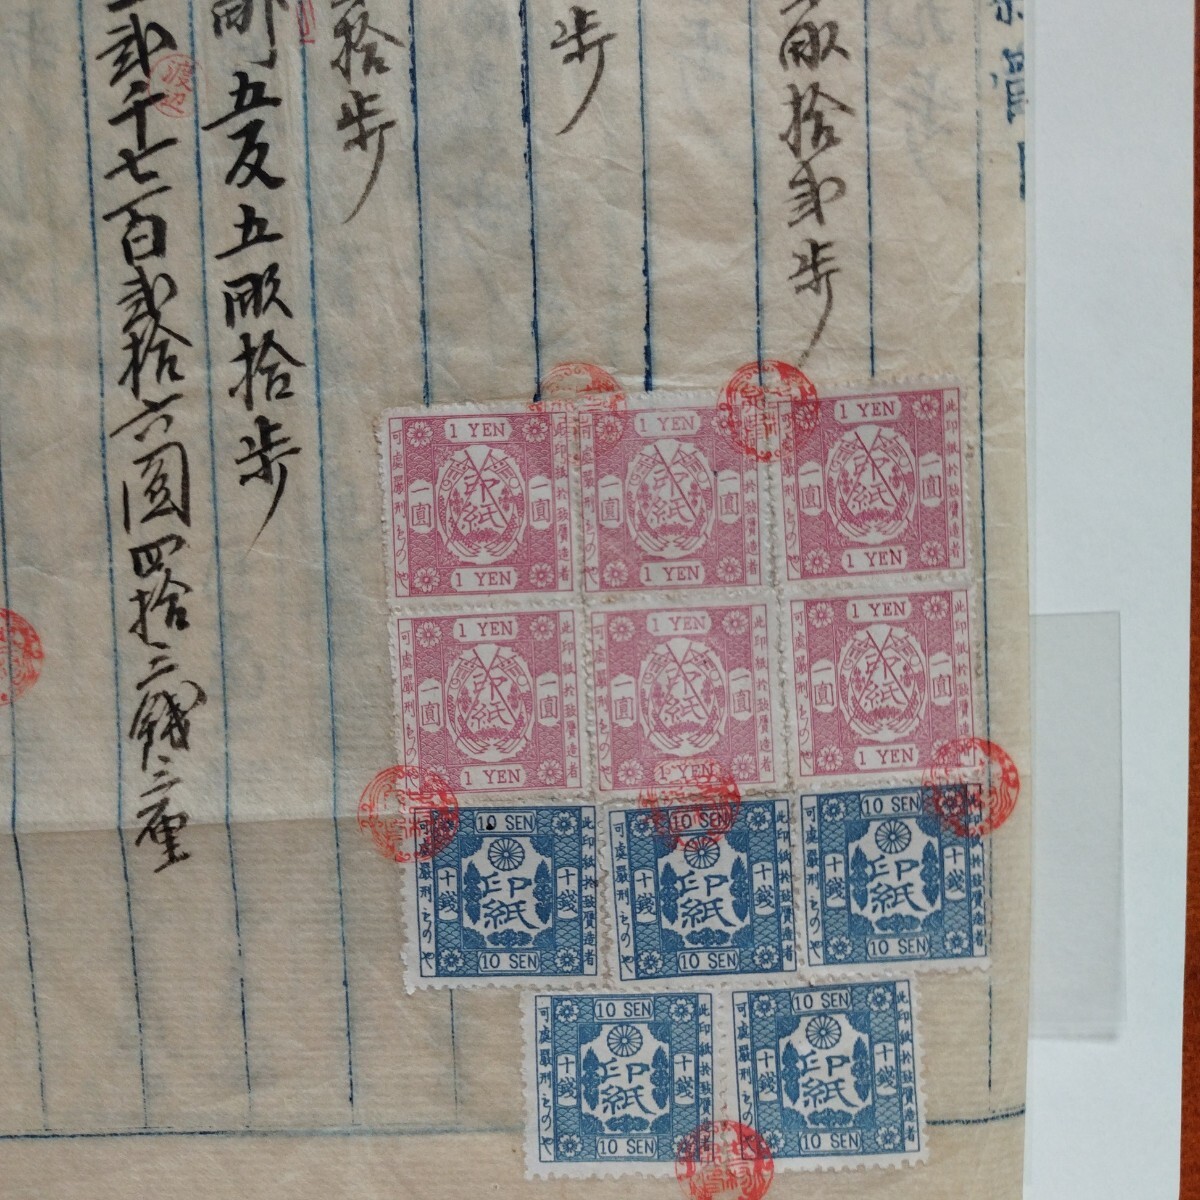 畝拾弐歩
歩
拾歩
五反五畝拾歩
弐千七百弐拾六圓四拾三銭三厘
渡邉
1 YEN
此印紙於致贋造者
印紙
一圓
一圓
可處嚴刑ものや
1 YEN
1 YEN
此印紙於致贋造者
印紙
一圓
一圓
可處嚴刑ものや
1 YEN
1 YEN
此印紙於致贋造者
印紙
一圓
一圓
可處嚴刑ものや
1 YEN
1 YEN
此印紙於致贋造者
印紙
一圓
一圓
可處嚴刑ものや
1 YEN
1 YEN
此印紙於致贋造者
印紙
一圓
一圓
可處嚴刑ものや
1 YEN
1 YEN
此印紙於致贋造者
印紙
一圓
一圓
可處嚴刑ものや
1 YEN
10 SEN
此印紙於致贋造者
印紙
十錢
十錢
可處嚴刑ものや
10 SEN
10 SEN
此印紙於致贋造者
印紙
十錢
十錢
可處嚴刑ものや
10 SEN
10 SEN
此印紙於致贋造者
印紙
十錢
十錢
可處嚴刑ものや
10 SEN
10 SEN
此印紙於致贋造者
印紙
十錢
十錢
可處嚴刑ものや
10 SEN
10 SEN
此印紙於致贋造者
印紙
十錢
十錢
可處嚴刑ものや
10 SEN